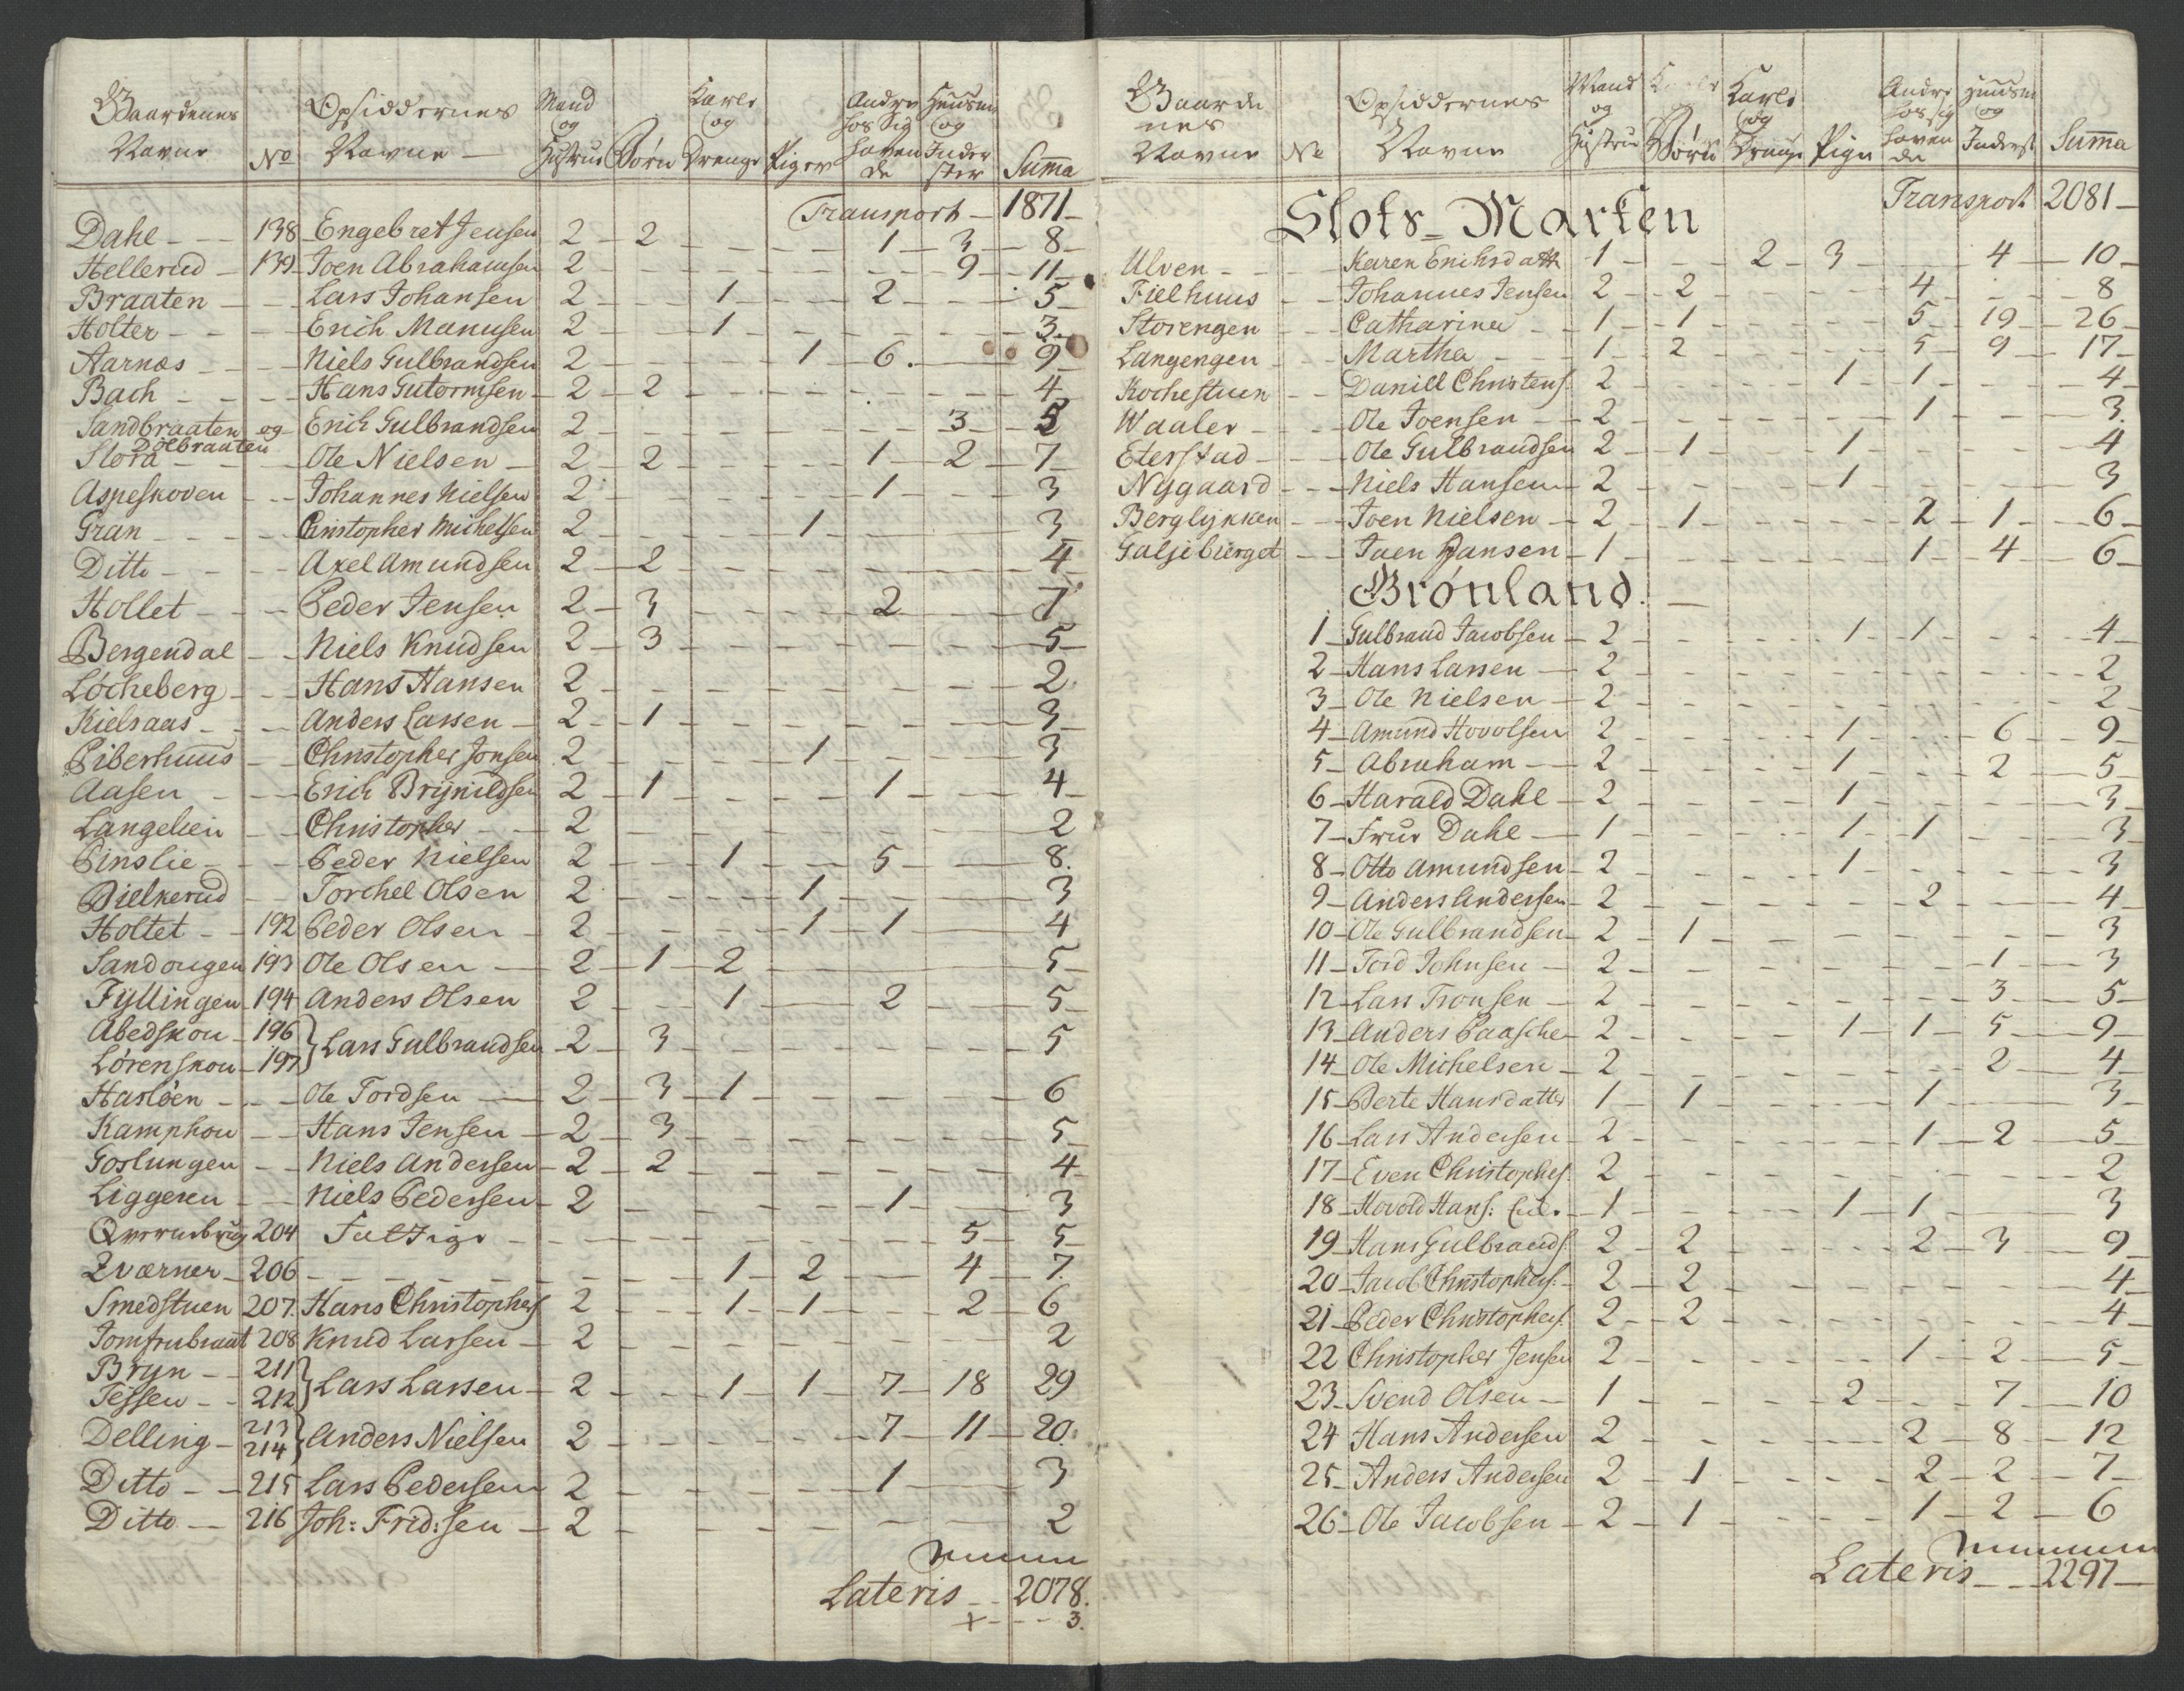 Gaardenes Navne | No | Opsiddernes Navne | Mand og Hustrue | Børn | Karle og Drenge | Piger | Andre hos sig havende | Huusm og Inderster | Summa
Transport 1871
Dahl 138 Engebret Jensen 2 2 1 3 8
Hellerud 139 Joen Abrahamsen 2 9 11
Braaten Lars Johansen 2 1 2 5
Holter Erich Manusen 2 1 3
Aarnæs Niels Gulbrandsen 2 1 6. 9
Bach Hans Gutormsen 2 2 4
Sandbraaten og Erich Gulbrandsen 2 3 5
Dølbraaten
Stora Ole Nielsen 2 2 1 2 7
Aspeskoven Johannes Nielsen 2 1 3
Gran Christopher Michelsen 2 1 3
Ditto Axel Amundsen 2 2 4
Hollet Peder Jensen 2 3 2 7
Bergendal Niels Knudsen 2 3 5
Løcheberg Hans Hansen 2 2
Kielsaas Anders Larsen 2 1 3
Piberhuus Christopher Jonsen 2 1 3
Aasen Erich Brynildsen 2 1 1 4
Langelien Christopher 2 2
Linslie Peder Nielsen 2 1 5 8.
Bielkerud Torchel Olsen 2 1 3
Holtet 192 Peder Olsen 2 1 1 4
Sandougen 193 Ole Olsen 2 1 2 5
Fyllingen 194 Anders Olsen 2 1 2 5
Abedskou 196
Lørenskou 197 } Lars Gulbrandsen 2 3 5
Hasløen Ole Tordsen 2 3 1 6
Kamphou Hans Jensen 2 3 5
Goslungen Niels Andersen 2 2 4
Liggeren Niels Pedersen 2 1 3
Qvernebrug 204 Fattige 5 5
Zværner 206 1 2 4 7.
Smedstuen 207. Hans Christophers 2 1 1 2 6
Jomfrubraat 208 Knud Larsen 2 2
Bryn 211
Tessen 212 } Lars Larsen 2 1 1 7 18 29
Delling 213
214 } Anders Nielsen 2 7 11 20.
Ditto 215 Lars Pedersen 2 1 3
Ditto 216 Joh: Frid:sen 2 2
Lateris 2078.
+ 3.
Gaardenes Navne | No | Opsiddernes Navne | Mand og Hustru | Børn | Karle og Drenge | Pigr | Andre hos sig havende | Huusm og Inderst | Summa
Transport 2081
Slots-Marken
Ulven Karen Erichsdatt 1 2 3 4 10
Fielhuus Johannes Jensen 2 2 4 8
Storengen Catharina 1 1 5 19 26
Langengen Martha 1 2 5 9 17
Kochestuen Daniel Christens: 2 1 1 4
Waaler Ole Joensen 2 1 3.
Eterstad Ole Gulbrandsen 2 1 1 4
Nygaard Niels Hansen 2 1 3
Berglykken Joen Nielsen 2 1 2 1 6
Galjebierget Joen Jansen 1 1 4 6
Grønland.
1 Gulbrand Jacobsen 2 1 1 4
2 Hans Larsen 2 2
3 Ole Nielsen 2 2
4 Amund Hovolsen 2 1 6 9
5 Abraham 2 1 2 5
6 Harald Dahl 2 1 3
7 Frue Dahl 1 1 1 3
8 Otto Amundsen 2 1 3
9 Anders Andersen 2 2 4
10 Ole Gulbrandsen 2 1 3
11 Tord Johnsen 2 1 3
12 Lars Tronsen 2 3 5
13 Anders Paasche 2 1 1 5 9
14 Ole Michelsen 2 2 4
15 Berte Hansdatter 1 1 1 3
16 Lars Andersen 2 1 2 5
17 Even Christophers: 2 2
18 Hovold Hans: 1 1 1 3
19 Hans Gulbrands: 2 2 2 3 9
20 Jacob Christophers: 2 2 4
21 Peder Christophers: 2 2 4
22 Christopher Jensen 2 1 2 5
23 Svend Olsen 1 2 7 10
24 Hans Andersen 2 2 8 12
25 Anders Andersen 2 1 2 2 7
26 Ole Jacobsen 2 1 1 2 6
Lateris 2297